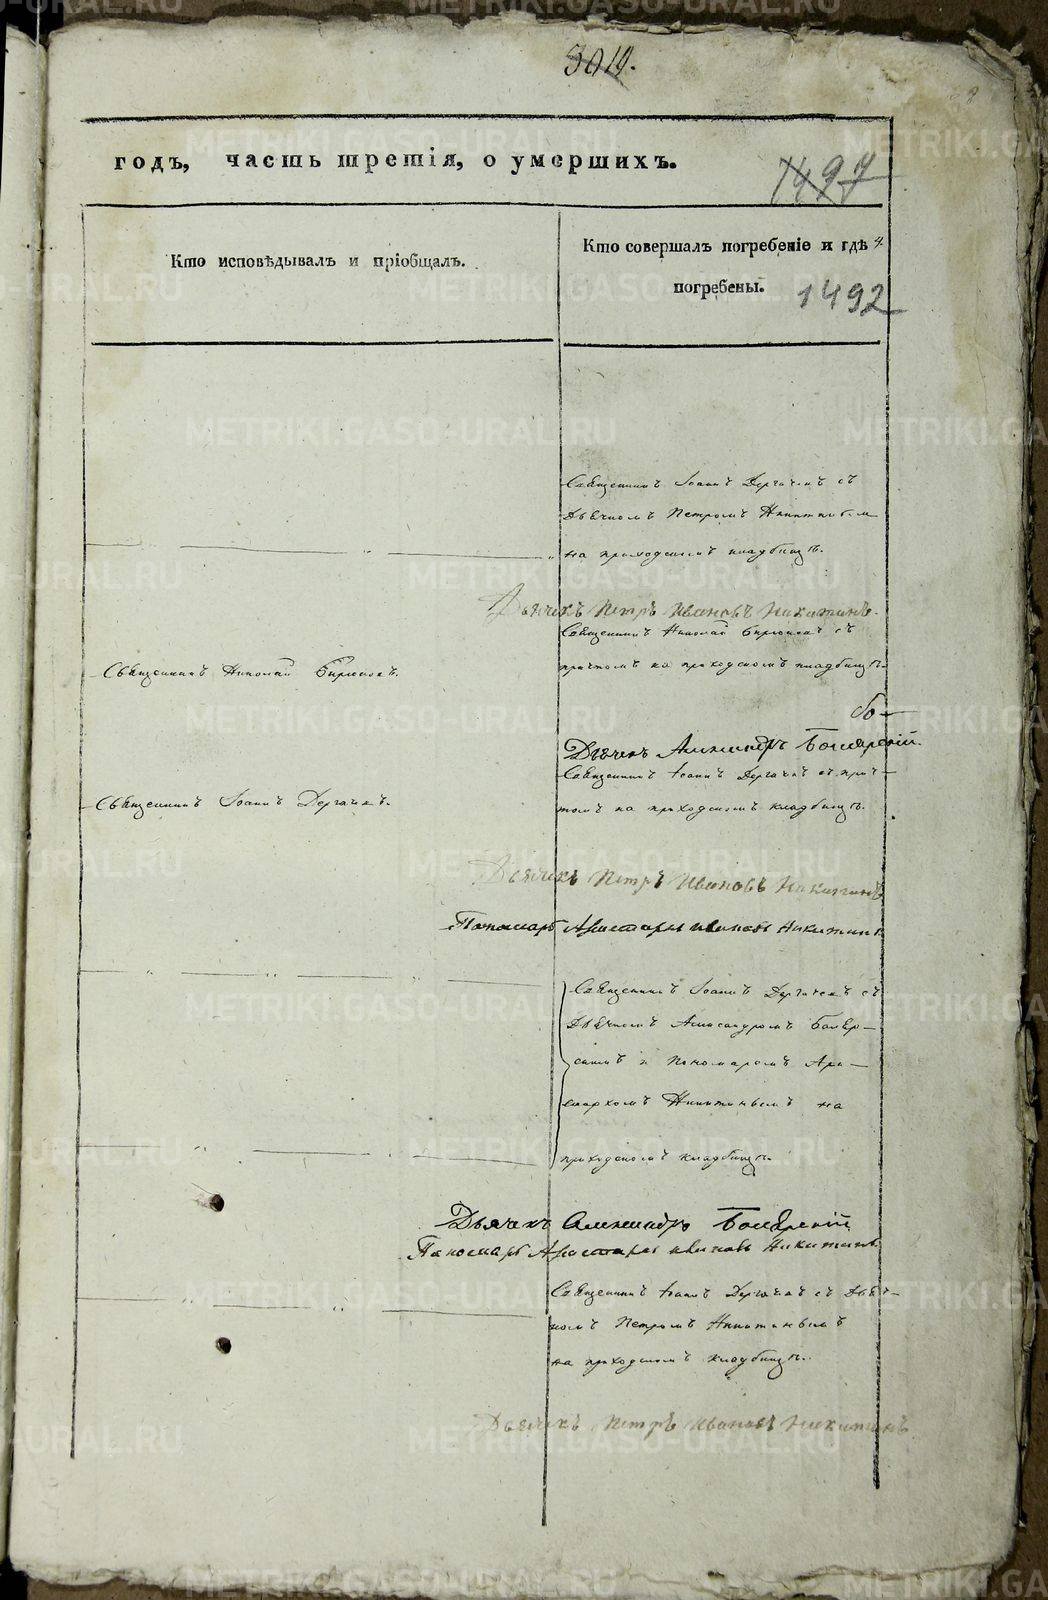 3014.
годъ, часть третія, о умершихъ.
1497
Кто исповѣдывалъ и пріобщалъ.
Кто совершалъ погребеніе и гдѣ
погребены.
1492
Священникъ Іоаннъ Дергачевъ съ
Дьячкомъ Петромъ Никитинымъ
на приходскомъ кладбищѣ.
Дьячекъ Петръ Ивановъ Никитинъ.
Священникъ Николай Бирюковъ съ
причтомъ на приходскомъ кладбищѣ.
Священникъ Николай Бирюковъ.
Дьячекъ Александръ Боярскій.
Священникъ Іоаннъ Дергачевъ съ прич-
томъ на приходскомъ кладбищѣ.
Священникъ Іоаннъ Дергачевъ.
Дьячекъ Петръ Ивановъ Никитинъ
Пономарь Аристархъ Ивановъ Никитинъ
Священникъ Іоаннъ Дергачевъ съ
Дьячкомъ Александромъ Бояр-
скимъ и Пономаремъ Ари-
стархомъ Никитинымъ на
приходскомъ кладбищѣ.
Дьячекъ Александръ Боярскій
Пономарь Аристархъ Ивановъ Никитинъ
Священникъ Іоаннъ Дергачевъ съ Дьяч-
комъ Петромъ Никитинымъ
на приходскомъ кладбищѣ.
Дьячекъ Петръ Ивановъ Никитинъ
METRIKI.GASO-URAL.RU